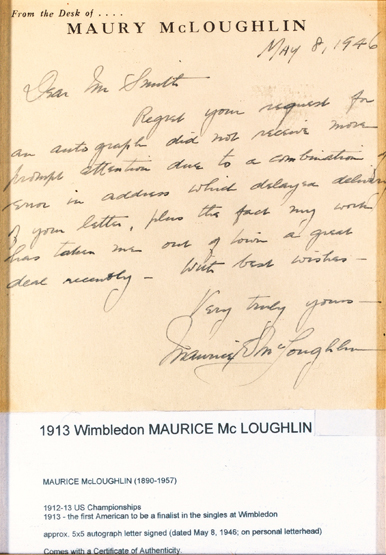 From the Desk of ....
MAURY McLOUGHLIN
May 8, 1946
Dear Mr Smith
Regret your request for
an autograph did not receive more
prompt attention due to a combination of
error in address which delayed delivery
of your letter, plus the fact my work
has taken me out of town a great
deal recently — With best wishes —
Very truly yours —
Maurice E McLoughlin
1913 Wimbledon MAURICE Mc LOUGHLIN
MAURICE McLOUGHLIN (1890-1957)
1912-13 US Championships
1913 - the first American to be a finalist in the singles at Wimbledon
approx. 5x5 autograph letter signed (dated May 8, 1946; on personal letterhead)
Comes with a Certificate of Authenticity.